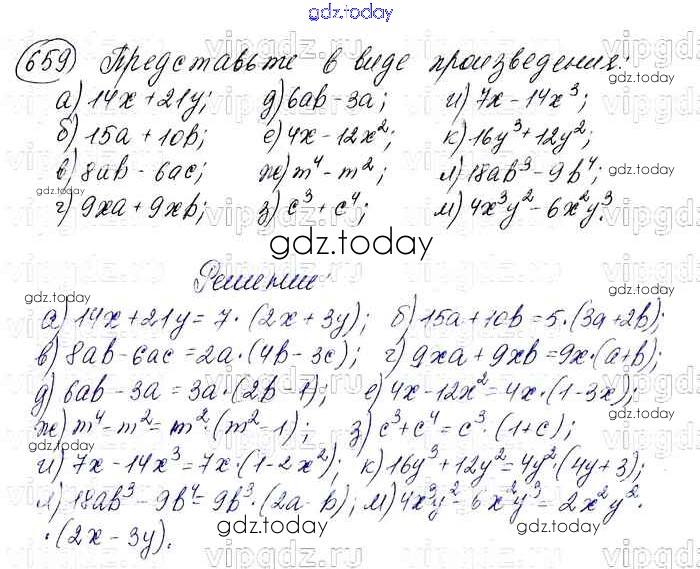 gdz.today
659) Представьте в виде произведения:
а) 14x+21y; д) 6ab-3a; и) 7x-14x³;
б) 15a+10b; е) 4x-12x²; к) 16y³+12y²;
в) 8ab-6ac; ж) m⁴-m²; л) 18ab³-9b⁴;
г) 9xa+9xb; з) c³+c⁴; м) 4x³y²-6x²y³.
gdz.today
Решение:
а) 14x+21y=7·(2x+3y); б) 15a+10b=5·(3a+2b);
в) 8ab-6ac=2a·(4b-3c); г) 9xa+9xb=9x·(a+b);
д) 6ab-3a=3a·(2b-1); е) 4x-12x²=4x·(1-3x);
ж) m⁴-m²=m²·(m²-1); з) c³+c⁴=c³·(1+c);
и) 7x-14x³=7x·(1-2x²); к) 16y³+12y²=4y²·(4y+3);
л) 18ab³-9b⁴=9b³·(2a-b); м) 4x³y²-6x²y³=2x²y²·
·(2x-3y).
gdz.today